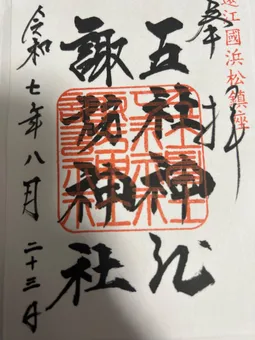 遠江國浜松鎮座
奉拝
五社神社
諏訪神社
令和七年八月二十三日